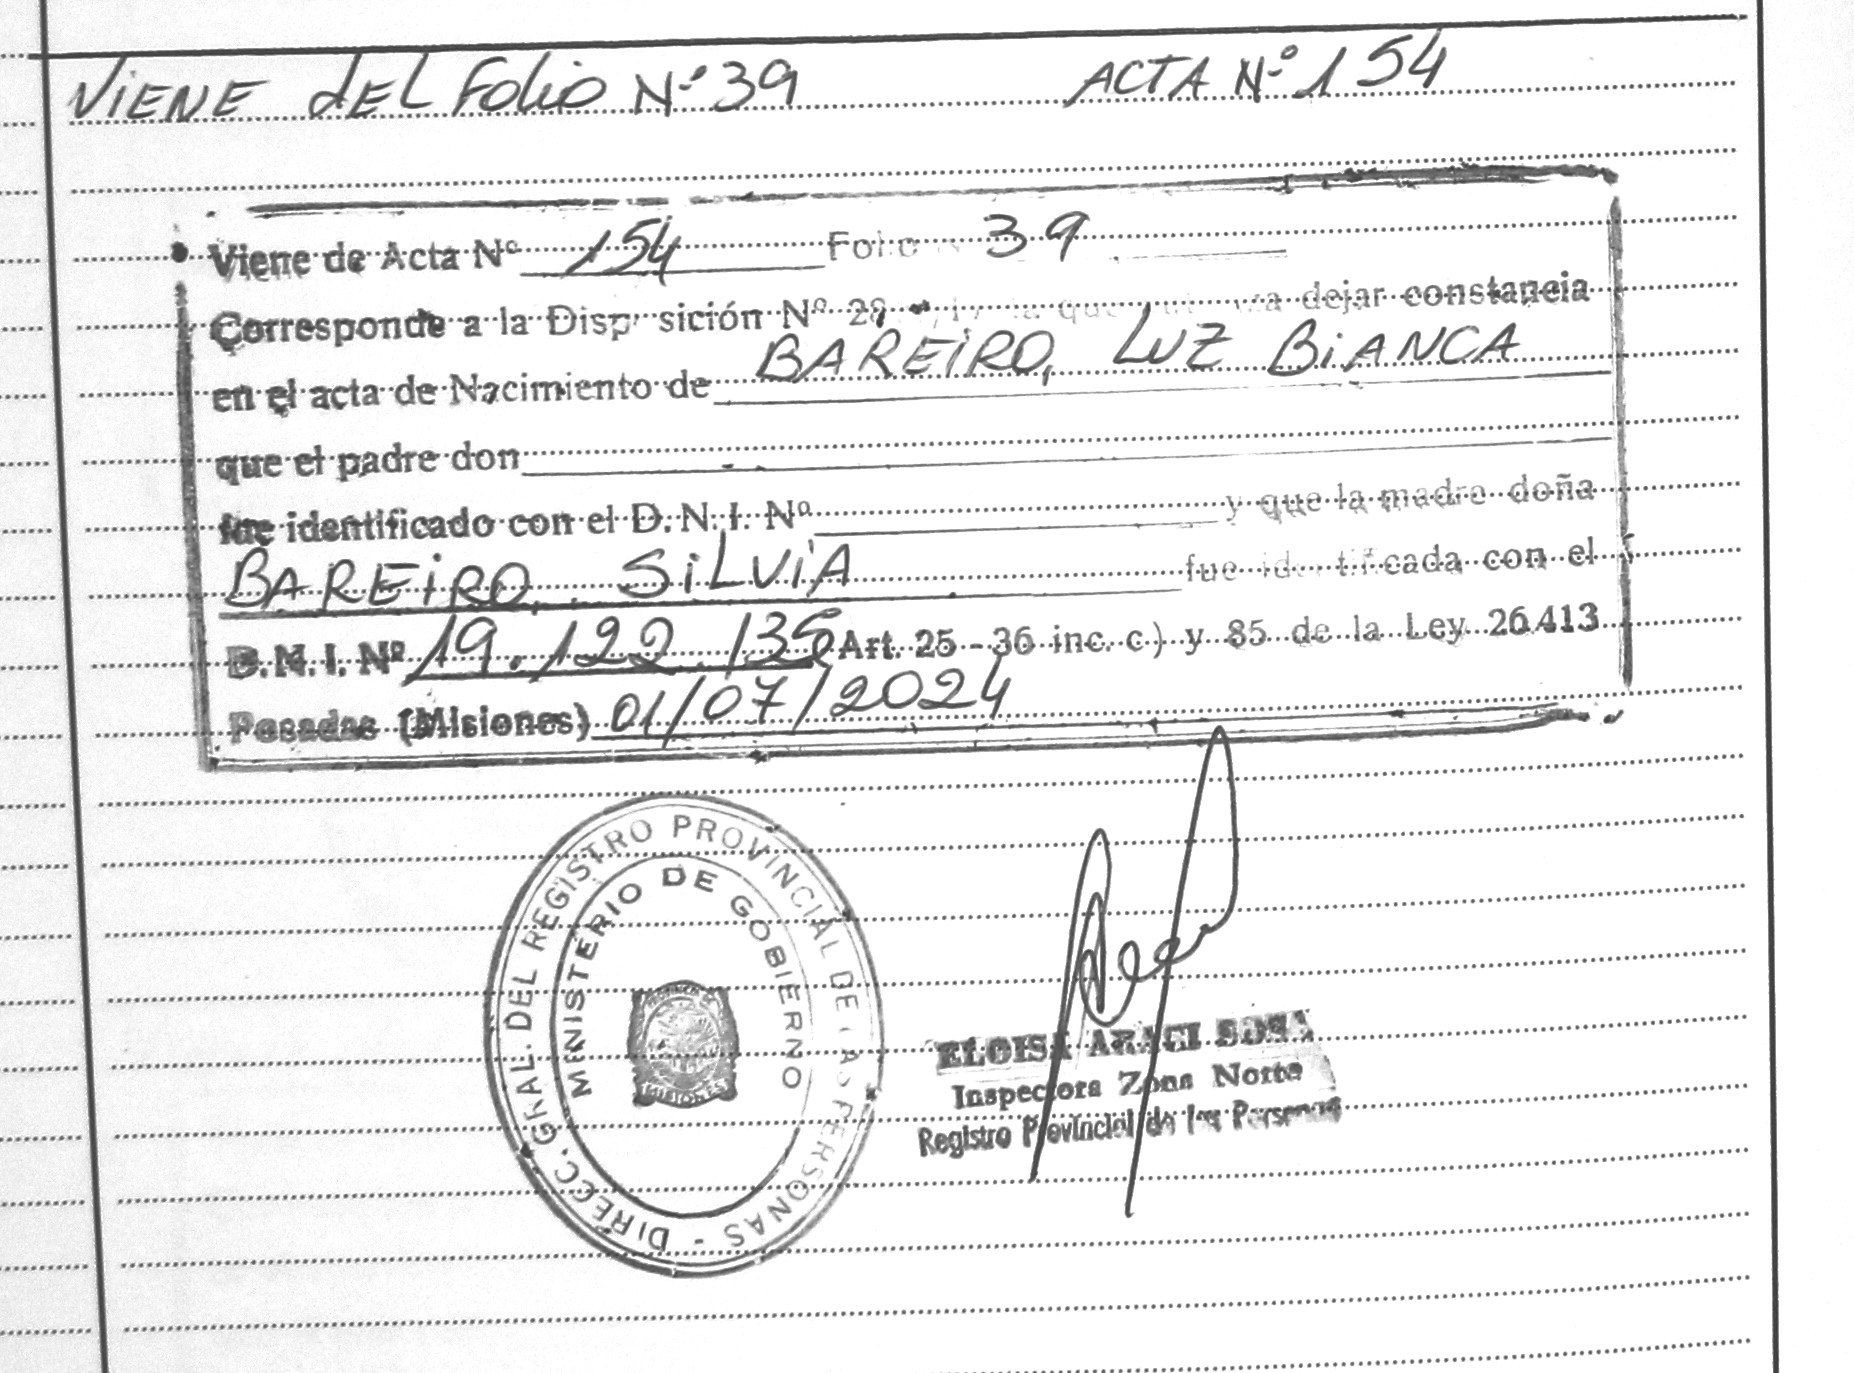 VIENE dEL Folio Nº 39 ACTA Nº 154
Viene de Acta Nº 154 Folio 39
Corresponde a la Disposición Nº 28 que dejar constancia
en el acta de Nacimiento de BAREIRO, LUZ BIANCA
que el padre don
fue identificado con el D. N. I. Nº y que la madre doña
BAREIRO, SILVIA fue identificada con el
D. N. I. Nº 19.122.136 Art. 25 - 36 inc. c) y 85 de la Ley 26.413
Posadas (Misiones) 01/07/2024
DIRECC. GRAL. DEL REGISTRO PROVINCIAL DE LAS PERSONAS -
MINISTERIO DE GOBIERNO
MISIONES
ELOISA ARACI SOSA
Inspectora Zona Norte
Registro Provincial de las Personas